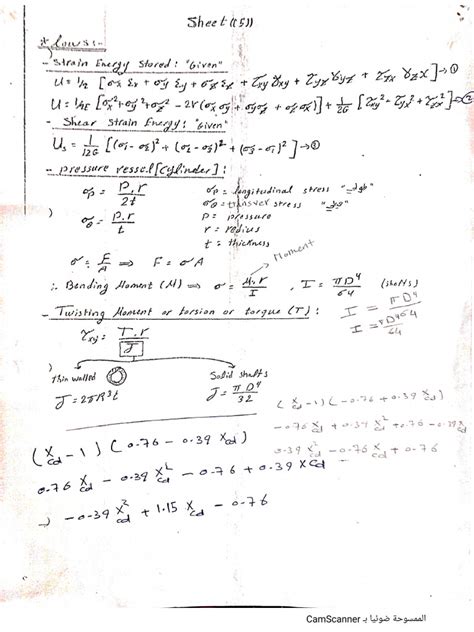 Sheet (5)
* Laws :-
- Strain Energy Stored : "Given"
U = 1/2 [σx εx + σy εy + σz εz + τxy γxy + τyz γyz + τzx γzx] → ①
U = 1/2E [σx² + σy² + σz² - 2ν(σx σy + σyσz + σzσx)] + 1/2G [τxy² + τyz² + τzx²] → ②
- Shear Strain Energy : "Given"
Us = 1/12G [(σ1 - σ2)² + (σ2 - σ3)² + (σ3 - σ1)²] → ③
- pressure vessel [Cylinder] :
σp = P.r / 2t
σp = longitudinal stress
σθ = P.r / t
σθ = transver stress
P = pressure
r = radius
t = thickness
σ = F/A ⟹ F = σ A
Moment
∴ Bending Moment (M) ⟹ σ = M.r / I , I = πD⁴ / 64 (shafts)
I = πD⁴ / 64
I = πD⁴ / 64
- Twisting Moment or torsion or torque (T) :
τxy = T.r / J
Thin walled
Solid shafts
J = 2πR³t
J = πD⁴ / 32
(Xcd - 1) (-0.76 + 0.39 Xcd)
(Xcd - 1) (0.76 - 0.39 Xcd)
0.76 Xcd - 0.39 X²cd - 0.76 + 0.39 Xcd
-0.39 X²cd + 1.15 Xcd - 0.76
الممسوحة ضوئيا بـ CamScanner